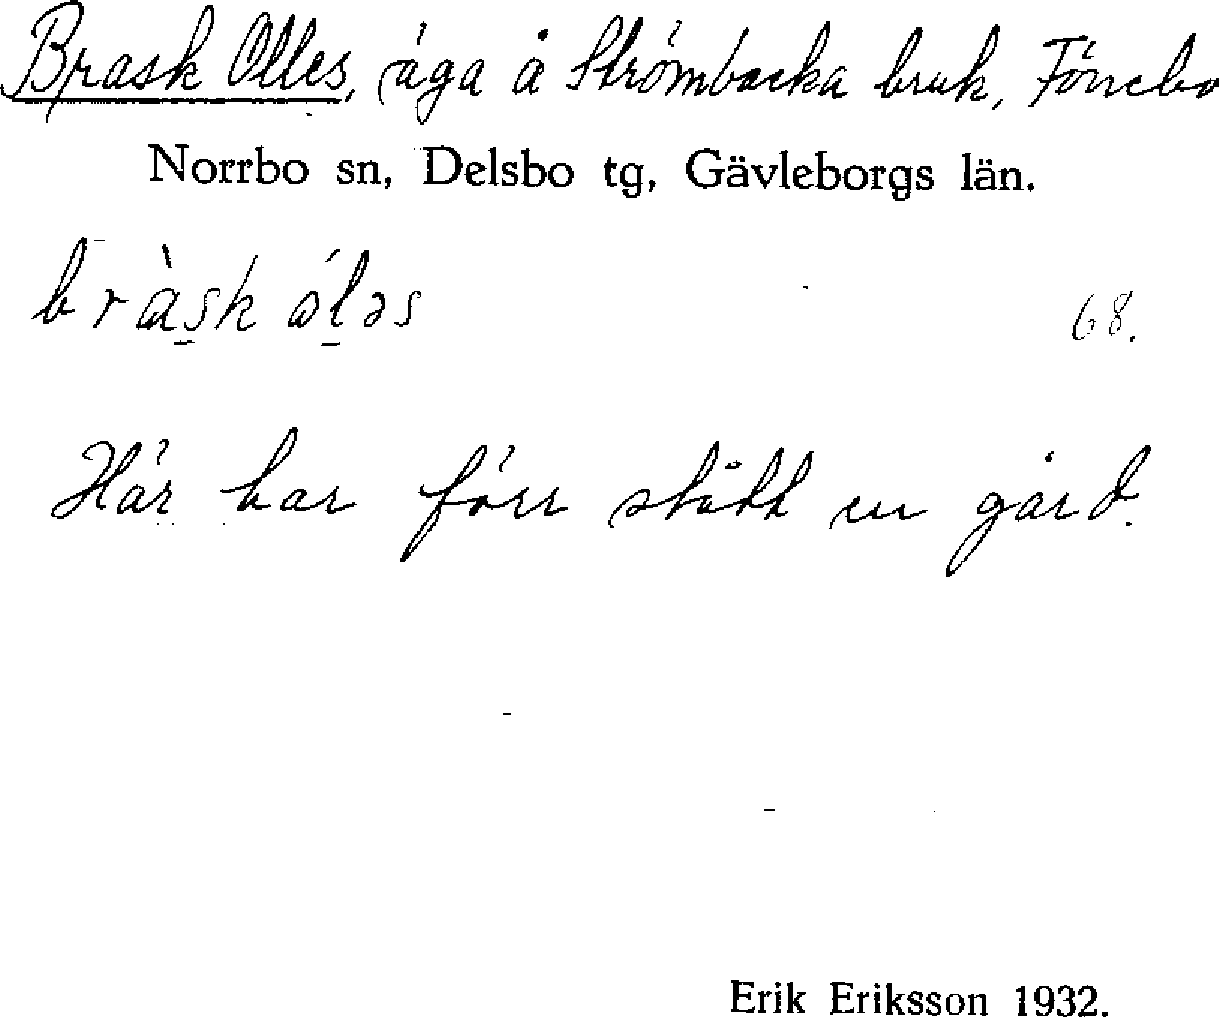 Brask Olles, äga å Strömbacka bruk, Fönebo
Norrbo sn, Delsbo tg, Gävleborgs län.
bràsk óləs 68.
Här har förr stått en gård.
Erik Eriksson 1932.